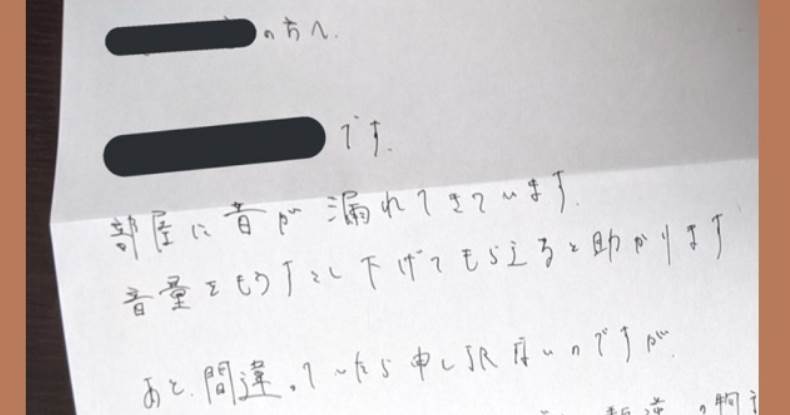 の方へ.
です.
部屋に音が漏れてきています.
音量をもう少し下げてもらえると助かります
あと、間違っていたら申し訳ないのですが、